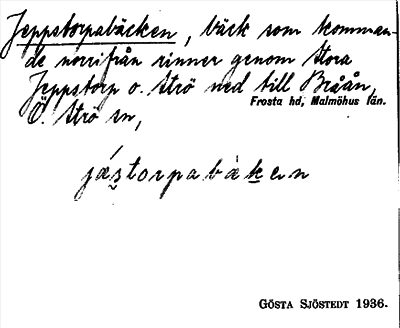 Jeppstorpabäcken, bäck som komman-
de norrifrån rinner genom Stora
Jeppstorp o. Strö ned till Bråån,
Frosta hd, Malmöhus län.
Ö. Strö sn,
jæstorpabäken
GÖSTA SJÖSTEDT 1936.